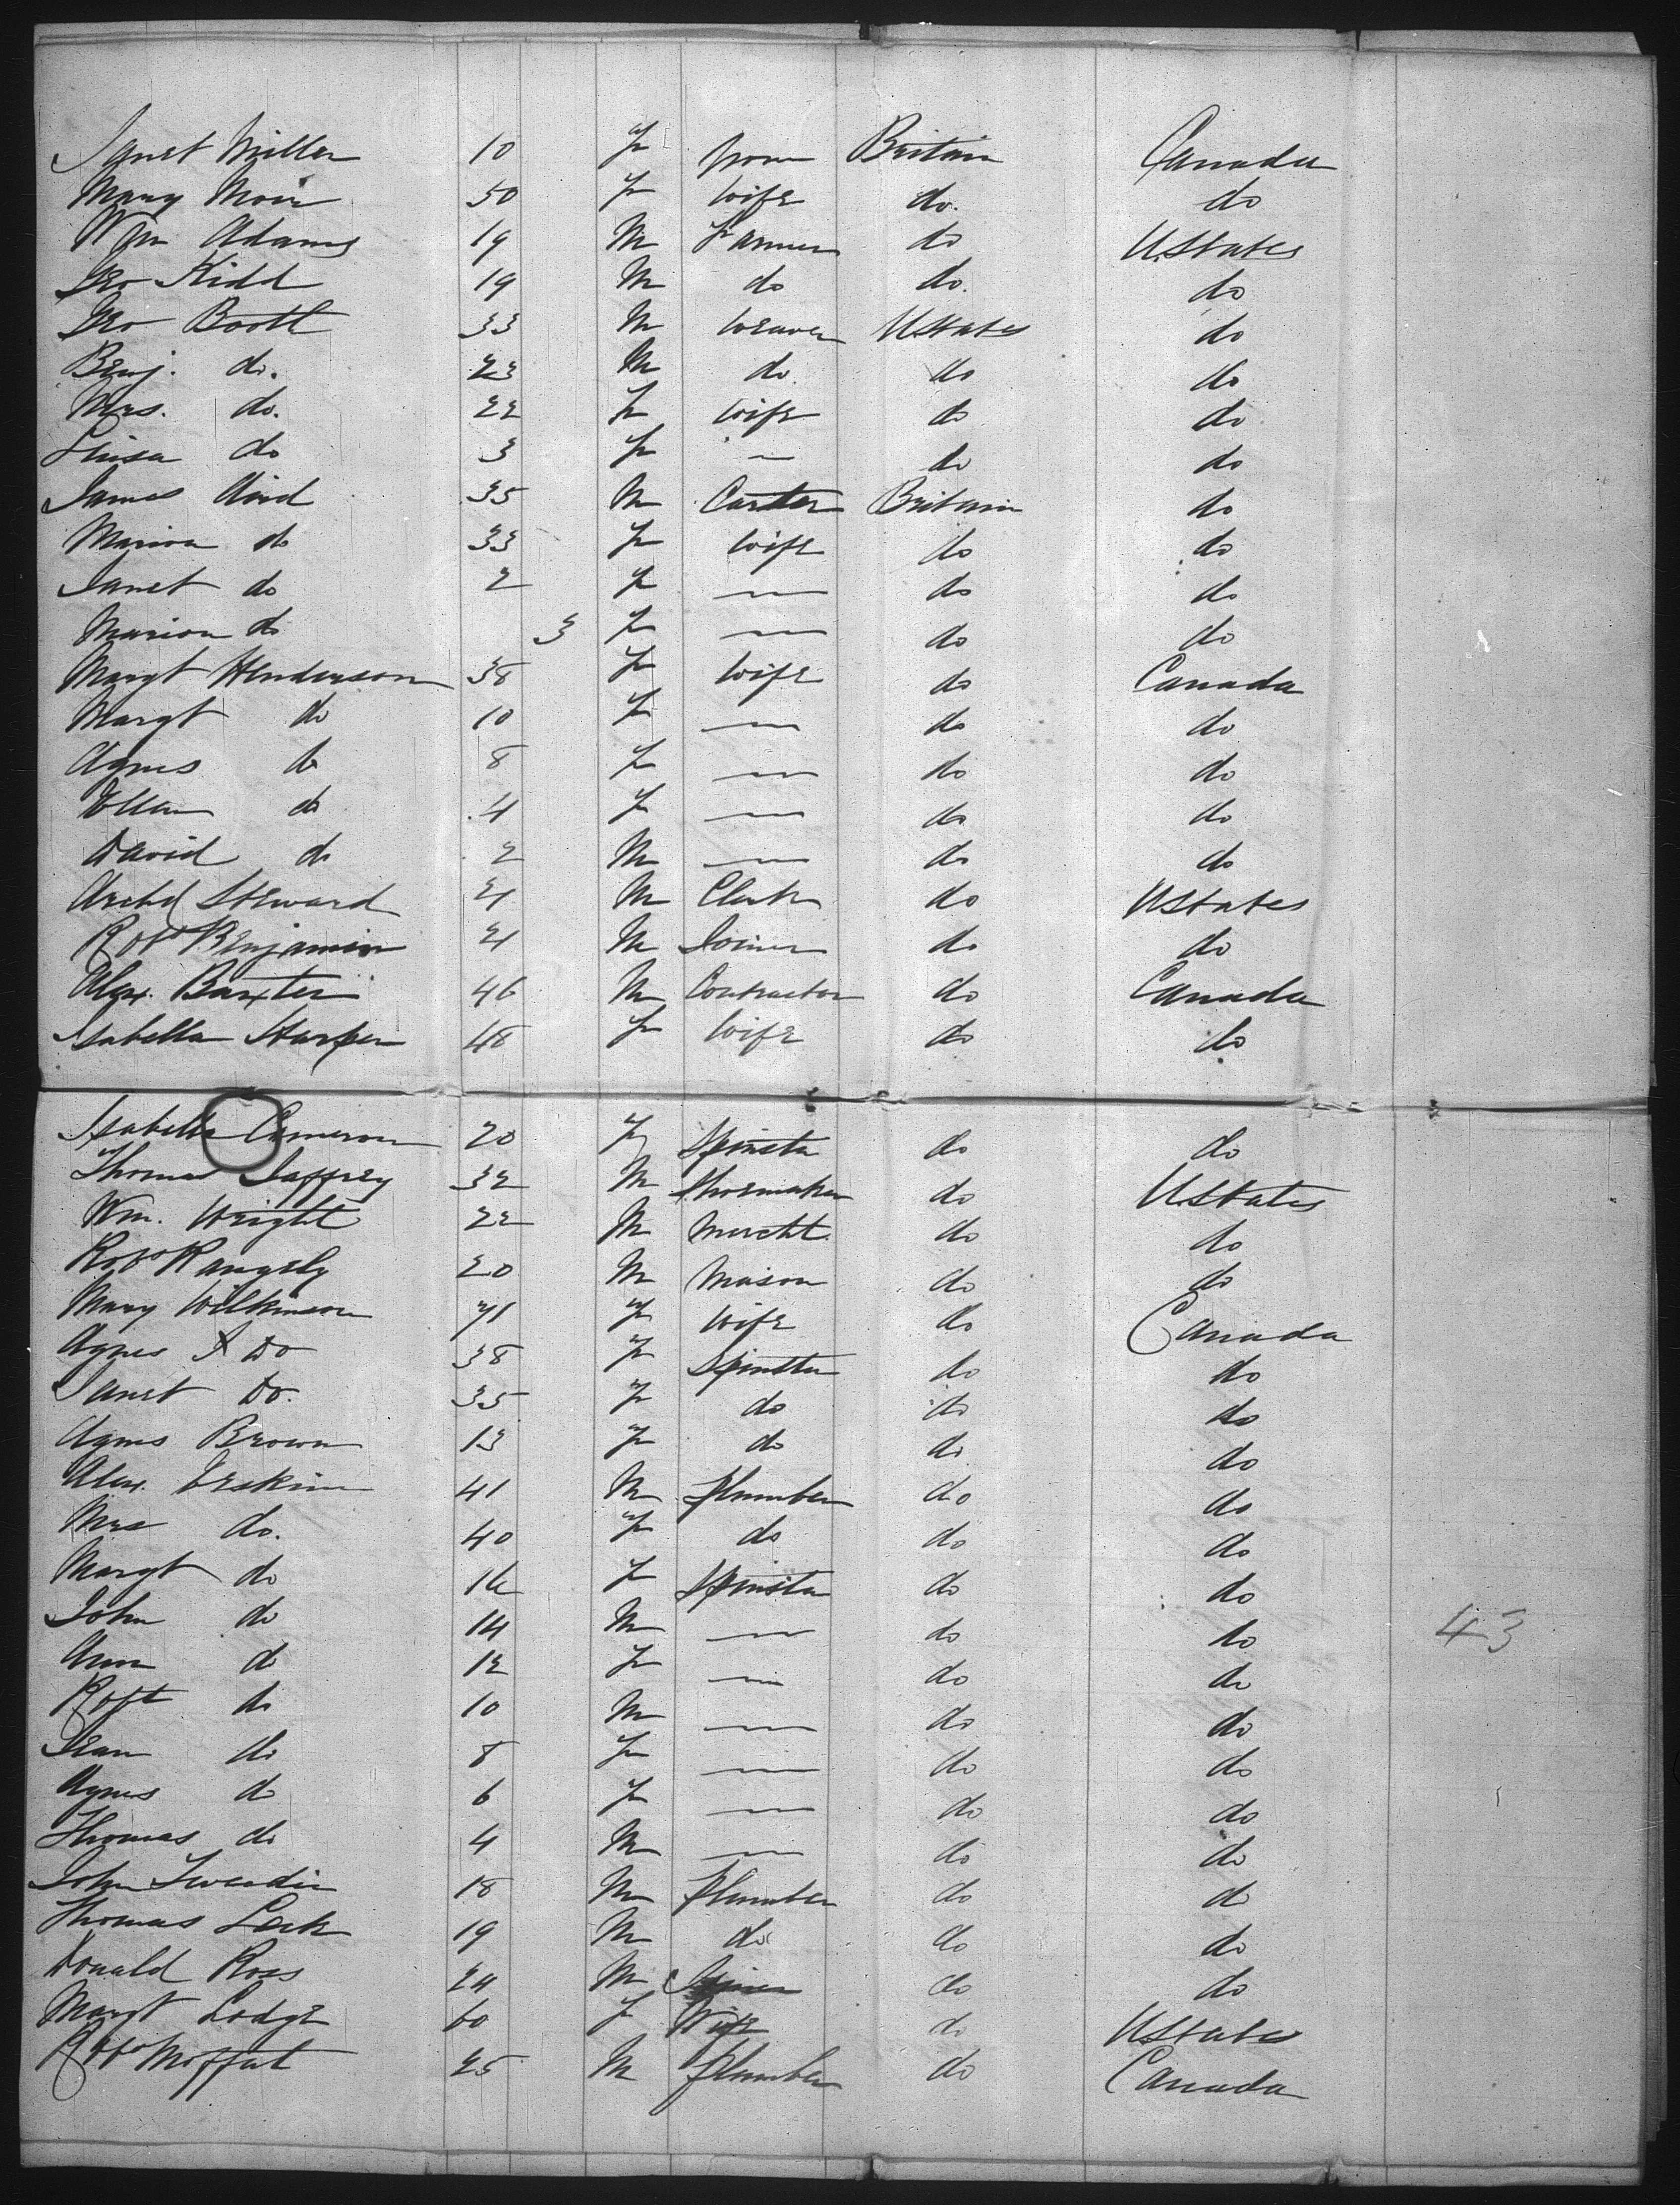 Janet Miller 10 F from Britain Canada
Mary Moir 50 F Wife do. do
Wm Adams 19 M Farmer do UStates
Geo Kidd 19 M do do. do
Geo Boott 33 M Weaver UStates do
Benj. do. 23 M do. do do
Mrs. do. 22 F Wife do do
Luisa do 3 F — do do
James Aird 35 M Carter Britain do
Marion do 33 F Wife do do
Janet do 2 F — do do
Marion do 3 F — do do
Margt Henderson 38 F Wife do Canada
Margt do 10 F — do do
Agnes do 8 F — do do
Ellen do 4 F — do do
David do 2 M — do do
Archd Steward 21 M Clerk do UStates
Robt Benjamin 21 M Joiner do do
Alex. Baxter 46 M Contractor do Canada
Isabella Harper 48 F Wife do do
Isabella Cameron 20 F Spinster do do
Thomas Jaffrey 32 M Shoemaker do UStates
Wm. Wright 22 M Mercht. do do
Robt Rangely 20 M Mason do do
Mary Wilkinson 71 F Wife do Canada
Agnes Do 38 F Spinster do do
Janet Do. 35 F do do do
Agnes Brown 13 F do do do
Alex. Erskine 41 M Plumber do do
Mrs do. 40 F do do do
Margt do 16 F Spinster do do
John do 14 M — do do
43
Ann do 12 F — do do
Robt do 10 M — do do
Jean do 8 F — do do
Agnes do 6 F — do do
Thomas do 4 M — do do
John 18 M Plumber do do
Thomas 19 M do do do
Donald Ross 24 M Joiner do do
Margt Lodge 60 F Wife do UStates
Robt Moffat 25 M Plumber do Canada